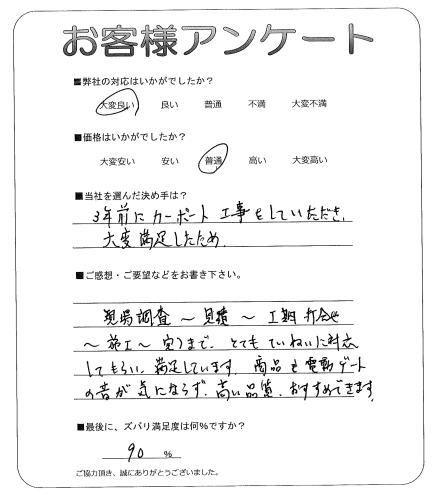 お客様アンケート
■弊社の対応はいかがでしたか？
大変良い 良い 普通 不満 大変不満
■価格はいかがでしたか？
大変安い 安い 普通 高い 大変高い
■当社を選んだ決め手は？
3年前にカーポート工事をしていただき、
大変満足したため
■ご感想・ご要望などをお書き下さい。
現場調査～見積～工期打合せ
～施工～完了まで、とてもていねいに対応
してもらい、満足しています。商品も電動ゲート
の音が気にならず、高い品質、おすすめできます
■最後に、ズバリ満足度は何％ですか？
90 ％
ご協力頂き、誠にありがとうございました。